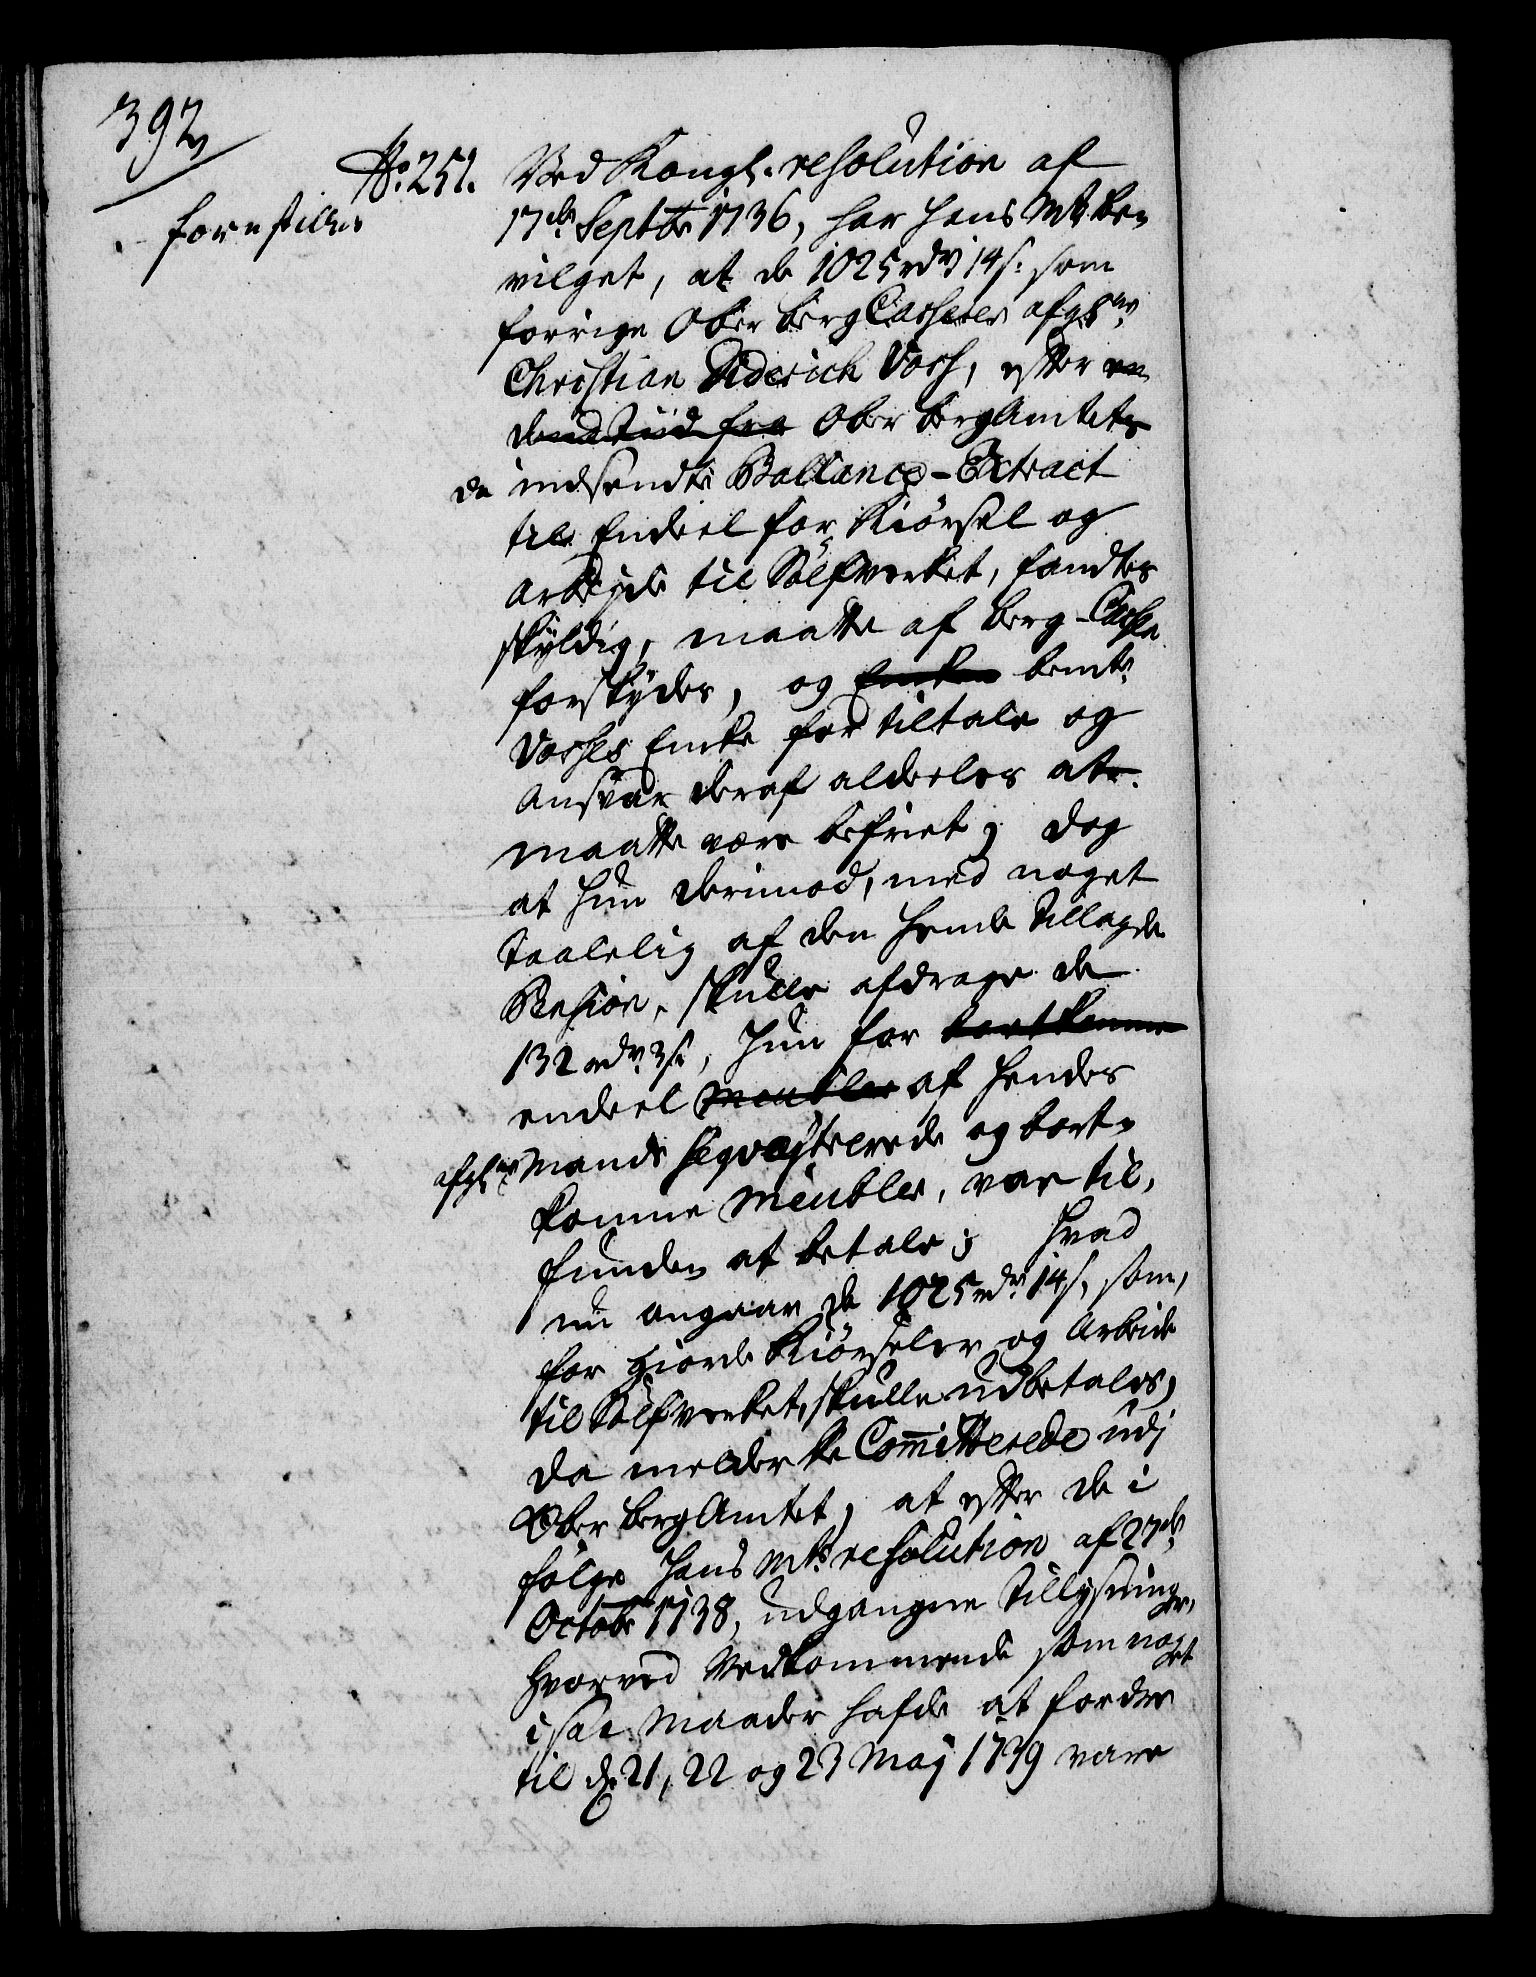 392
No: 251.
forestilles
Ved Kongl. resolution af
17de Septbr 1736, har Hans Mt: be-
vilget, at de 1025 rdr 14 s: som
forrige Ober Berg Casserer afgl:
Christian Diderich Voss, efter en
dend tiid fra Ober Berg Amtets
da indsendte Ballance-Extract
til Endeel for Kiørsel og
Arbejde til Sølfverket, fandtes
skyldig, maatte af Berg-Cassen
forskydes, og Enken bemte
Vosses Enke for tiltale og
Ansvar deraf aldeeles at
maatte være befriet; dog
at hun derimod, med noget
taalelig af den hende tillagde
Pension, skulle afdrage de
132 rdr 3 s:, hun for bortkomne
endeel Meubler af hendes
afgl: Mands seqvesterede og bort-
komne Meubler, var til-
funden at betale; Hvad
nu angaar de 1025 rdr 14 s, som,
for giorde Kiørseler og Arbeide
til Sølfverket, skulle udbetales,
da melder de Committerede udj
Ober Berg Amtet, at efter de i
følge Hans Mts resolution af 27de
Octobr 1738, udgangne Tillysninger,
hvorved Vedkommende som noget
i saa Maader hafde at fordre
til d. 21, 22 og 23 Maj 1739 vare